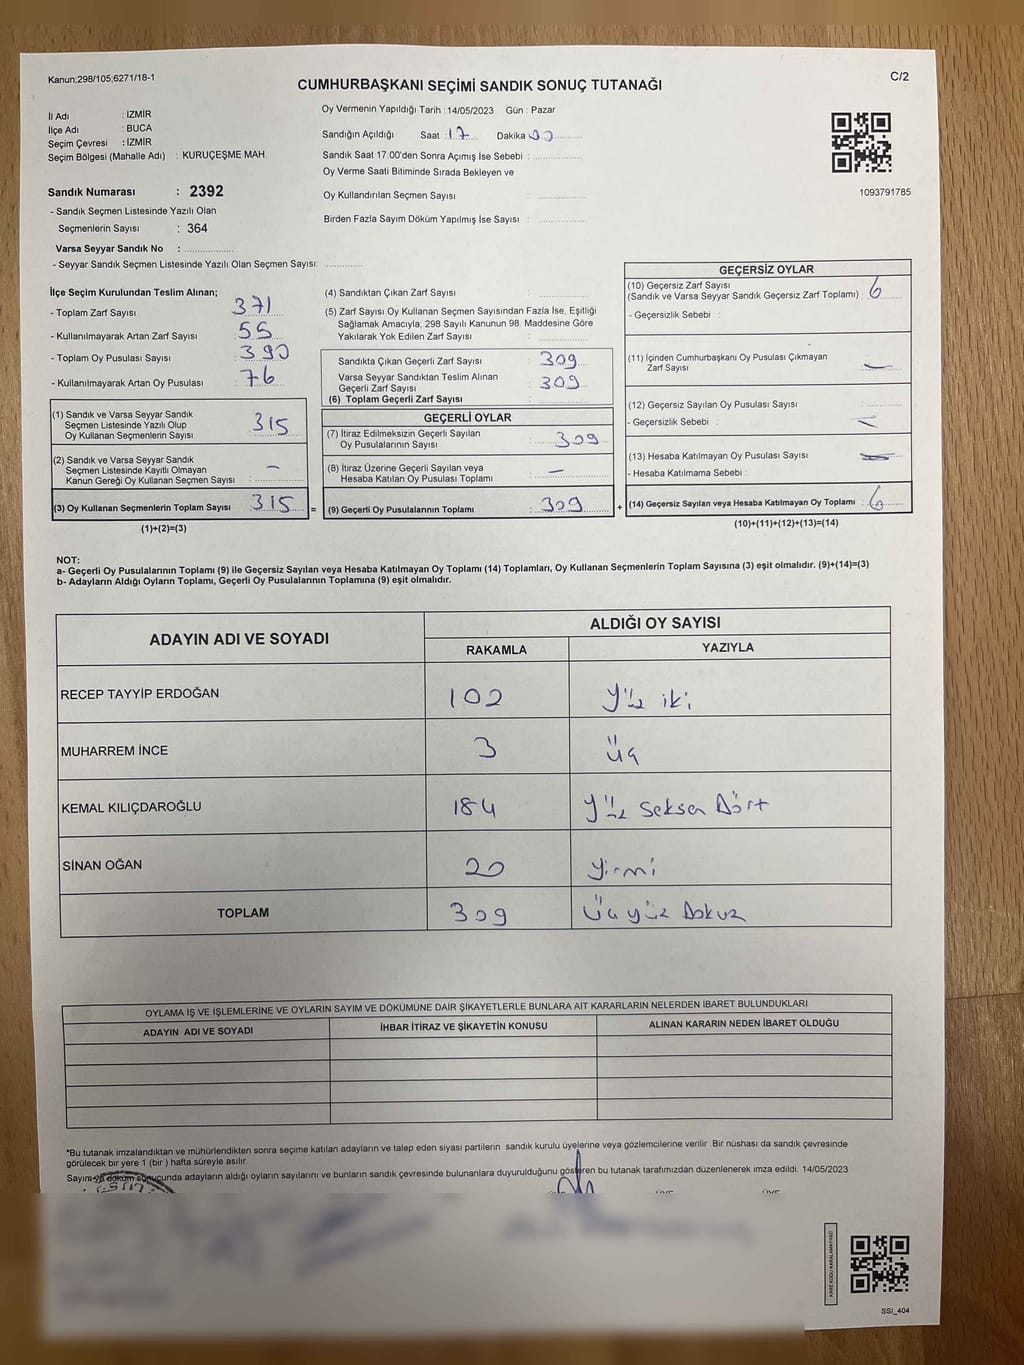 Kanun;298/105;6271/18-1
C/2
CUMHURBAŞKANI SEÇİMİ SANDIK SONUÇ TUTANAĞI
İl Adı : İZMİR
İlçe Adı : BUCA
Seçim Çevresi : İZMİR
Seçim Bölgesi (Mahalle Adı) : KURUÇEŞME MAH.
Sandık Numarası : 2392
- Sandık Seçmen Listesinde Yazılı Olan
Seçmenlerin Sayısı : 364
Varsa Seyyar Sandık No :
- Seyyar Sandık Seçmen Listesinde Yazılı Olan Seçmen Sayısı:
Oy Vermenin Yapıldığı Tarih : 14/05/2023 Gün : Pazar
Sandığın Açıldığı Saat : 17 Dakika 00
Sandık Saat 17:00'den Sonra Açımış İse Sebebi :
Oy Verme Saati Bitiminde Sırada Bekleyen ve
Oy Kullandırılan Seçmen Sayısı :
Birden Fazla Sayım Döküm Yapılmış İse Sayısı :
1093791785
İlçe Seçim Kurulundan Teslim Alınan;
- Toplam Zarf Sayısı : 371
- Kullanılmayarak Artan Zarf Sayısı : 55
- Toplam Oy Pusulası Sayısı : 390
- Kullanılmayarak Artan Oy Pusulası : 76
(1) Sandık ve Varsa Seyyar Sandık
Seçmen Listesinde Yazılı Olup
Oy Kullanan Seçmenlerin Sayısı : 315
(2) Sandık ve Varsa Seyyar Sandık
Seçmen Listesinde Kayıtlı Olmayan
Kanun Gereği Oy Kullanan Seçmen Sayısı : –
(3) Oy Kullanan Seçmenlerin Toplam Sayısı : 315
(1)+(2)=(3)
=
(4) Sandıktan Çıkan Zarf Sayısı :
(5) Zarf Sayısı Oy Kullanan Seçmen Sayısından Fazla İse, Eşitliği
Sağlamak Amacıyla, 298 Sayılı Kanunun 98. Maddesine Göre
Yakılarak Yok Edilen Zarf Sayısı :
Sandıkta Çıkan Geçerli Zarf Sayısı : 309
Varsa Seyyar Sandıktan Teslim Alınan
Geçerli Zarf Sayısı : 309
(6) Toplam Geçerli Zarf Sayısı :
GEÇERLİ OYLAR
(7) İtiraz Edilmeksizin Geçerli Sayılan
Oy Pusulalarının Sayısı : 309
(8) İtiraz Üzerine Geçerli Sayılan veya
Hesaba Katılan Oy Pusulası Toplamı : –
(9) Geçerli Oy Pusulalarının Toplamı : 309
+
GEÇERSİZ OYLAR
(10) Geçersiz Zarf Sayısı
(Sandık ve Varsa Seyyar Sandık Geçersiz Zarf Toplamı) : 6
- Geçersizlik Sebebi :
(11) İçinden Cumhurbaşkanı Oy Pusulası Çıkmayan
Zarf Sayısı : –
(12) Geçersiz Sayılan Oy Pusulası Sayısı :
- Geçersizlik Sebebi : –
(13) Hesaba Katılmayan Oy Pusulası Sayısı : –
- Hesaba Katılmama Sebebi :
(14) Geçersiz Sayılan veya Hesaba Katılmayan Oy Toplamı : 6
(10)+(11)+(12)+(13)=(14)
NOT:
a- Geçerli Oy Pusulalarının Toplamı (9) ile Geçersiz Sayılan veya Hesaba Katılmayan Oy Toplamı (14) Toplamları, Oy Kullanan Seçmenlerin Toplam Sayısına (3) eşit olmalıdır. (9)+(14)=(3)
b- Adayların Aldığı Oyların Toplamı, Geçerli Oy Pusulalarının Toplamına (9) eşit olmalıdır.
ADAYIN ADI VE SOYADI ALDIĞI OY SAYISI
RAKAMLA YAZIYLA
RECEP TAYYİP ERDOĞAN 102 Yüz iki
MUHARREM İNCE 3 Üç
KEMAL KILIÇDAROĞLU 184 Yüz Seksen Dört
SİNAN OĞAN 20 Yirmi
TOPLAM 309 Üç yüz Dokuz
OYLAMA İŞ VE İŞLEMLERİNE VE OYLARIN SAYIM VE DÖKÜMÜNE DAİR ŞİKAYETLERLE BUNLARA AİT KARARLARIN NELERDEN İBARET BULUNDUKLARI
ADAYIN ADI VE SOYADI İHBAR İTİRAZ VE ŞİKAYETİN KONUSU ALINAN KARARIN NEDEN İBARET OLDUĞU
*Bu tutanak imzalandıktan ve mühürlendikten sonra seçime katılan adayların ve talep eden siyasi partilerin sandık kurulu üyelerine veya gözlemcilerine verilir. Bir nüshası da sandık çevresinde
görülecek bir yere 1 (bir ) hafta süreyle asılır.
Sayım ve döküm sonucunda adayların aldığı oyların sayılarını ve bunların sandık çevresinde bulunanlara duyurulduğunu gösteren bu tutanak tarafımızdan düzenlenerek imza edildi. 14/05/2023
KARE KODU KARALAMAYINIZ!
SSI_404